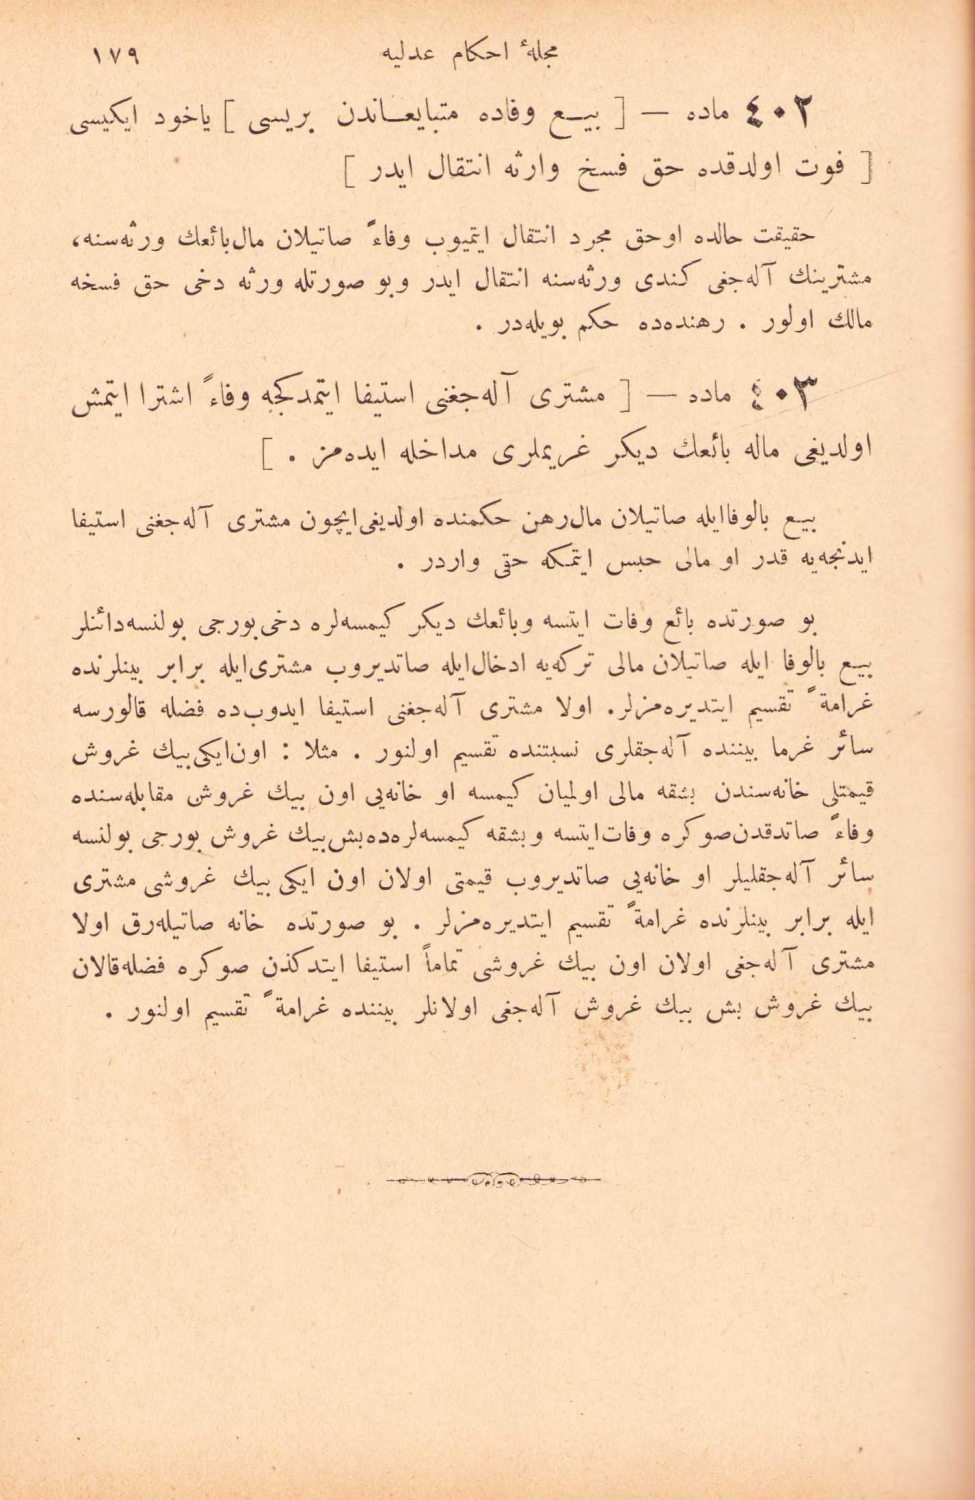 مجلهٔ احكام عدليه ١٧٩
٤٠٢ ماده — [ بيـع وفاده متبايعـاندن بريسى ] ياخود ايكيسى
[ فوت اولدقده حق فسخ وارثه انتقال ايدر ]
حقيقت حالده اوحق مجرد انتقال ايتميوب وفاءً صاتيلان مال‌بائعك ورثه‌سنه،
مشترينك آله‌جغى كندى ورثه‌سنه انتقال ايدر وبو صورتله ورثه دخى حق فسخه
مالك اولور . رهنده‌ده حكم بويله‌در .
٤٠٣ ماده — [ مشترى آله‌جغنى استيفا ايتمدكجه وفاءً اشترا ايتمش
اولديغى ماله بائعك ديكر غريملرى مداخله ايده‌مز . ]
بيع بالوفاايله صاتيلان مال‌رهن حكمنده اولديغى‌ايچون مشترى آله‌جغنى استيفا
ايدنجه‌يه قدر او مالى حبس ايتمكه حقى واردر .
بو صورتده بائع وفات ايتسه وبائعك ديكر كيمسه‌لره دخى‌بورجى بولنسه‌دائنلر
بيع بالوفا ايله صاتيلان مالى تركه‌يه ادخال‌ايله صاتديروب مشترى‌ايله برابر بينلرنده
غرامةً تقسيم ايتديره‌مزلر. اولا مشترى آله‌جغنى استيفا ايدوب‌ده فضله قالورسه
سائر غرما بيننده آله‌جقلرى نسبتنده تقسيم اولنور . مثلا : اون‌ايكى‌بيك غروش
قيمتلى خانه‌سندن بشقه مالى اولميان كيمسه او خانه‌يى اون بيك غروش مقابله‌سنده
وفاءً صاتدقدن‌صوكره وفات‌ايتسه وبشقه كيمسه‌لره‌ده‌بش‌بيك غروش بورجى بولنسه
سائر آله‌جقليلر او خانه‌يى صاتديروب قيمتى اولان اون ايكى بيك غروشى مشترى
ايله برابر بينلرنده غرامةً تقسيم ايتديره‌مزلر . بو صورتده خانه صاتيله‌رق اولا
مشترى آله‌جغى اولان اون بيك غروشى تماماً استيفا ايتدكدن صوكره فضله‌قالان
بيك غروش بش بيك غروش آله‌جغى اولانلر بيننده غرامةً تقسيم اولنور .